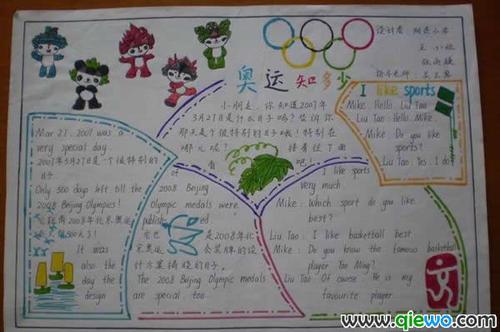 设计者:
奥运知多少
小朋友,你知道2007年
3月27日是什么日子吗?告诉你
那天是个很特别的日子哦!特别在
哪儿呢?
接着往下看
I like sports
Mike: Hello, Liu Tao
Liu Tao: Hello, Mike.
Mike: Do you like
sports?
Liu Tao: Yes, I do
Mar 27, 2007 was a
very special day
2007年3月27日是一个很特别的
日子
Only 500 days left till the
2008 Beijing Olympics!
2008年北京奥运
500天了!
It was
also the
day the
design
of the
2008 Beijing
Olympic medals were
published
是2008年北
京奥运会奖牌的设
计方案揭晓的日子。
The 2008 Beijing Olympic medals
are special too.
I like sports
very much.
Mike: Which sport do you like
best?
Liu Tao: I like basketball best.
Mike: Do you know the famous basketball
player Yao Ming?
Liu Tao: Of course. He is my
favourite player
www.qiewo.com